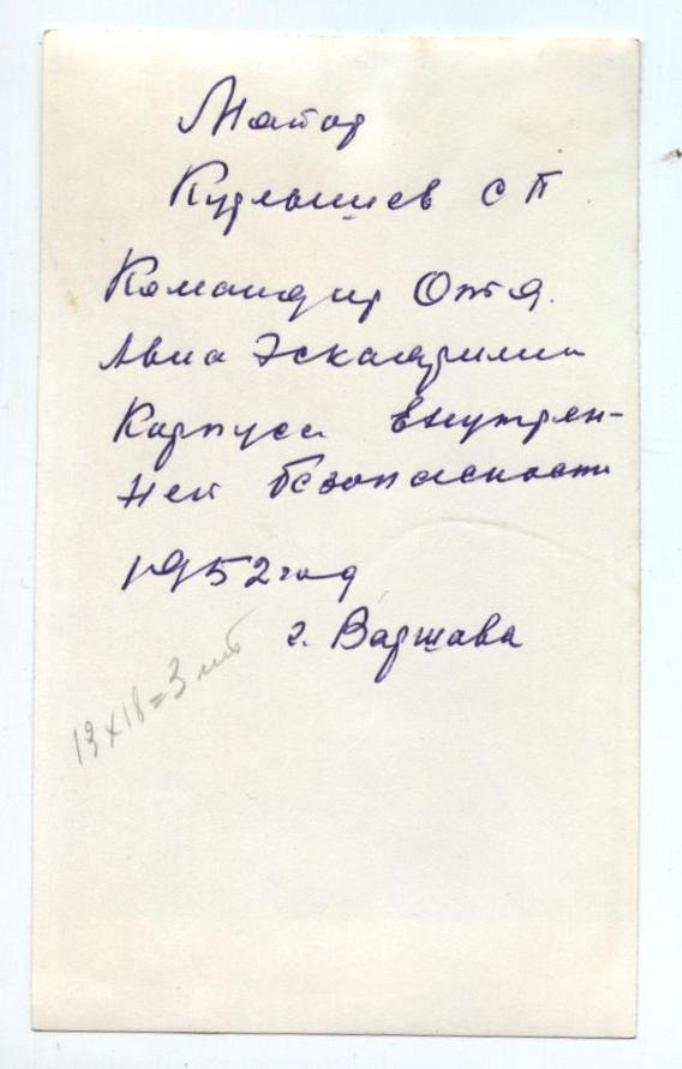 Майор
Курлышев С П
Командир Отд.
Авиа Эскадрильи
Корпуса внутрен-
ней безопасности
1952 год
г. Варшава
13х18=3 шт